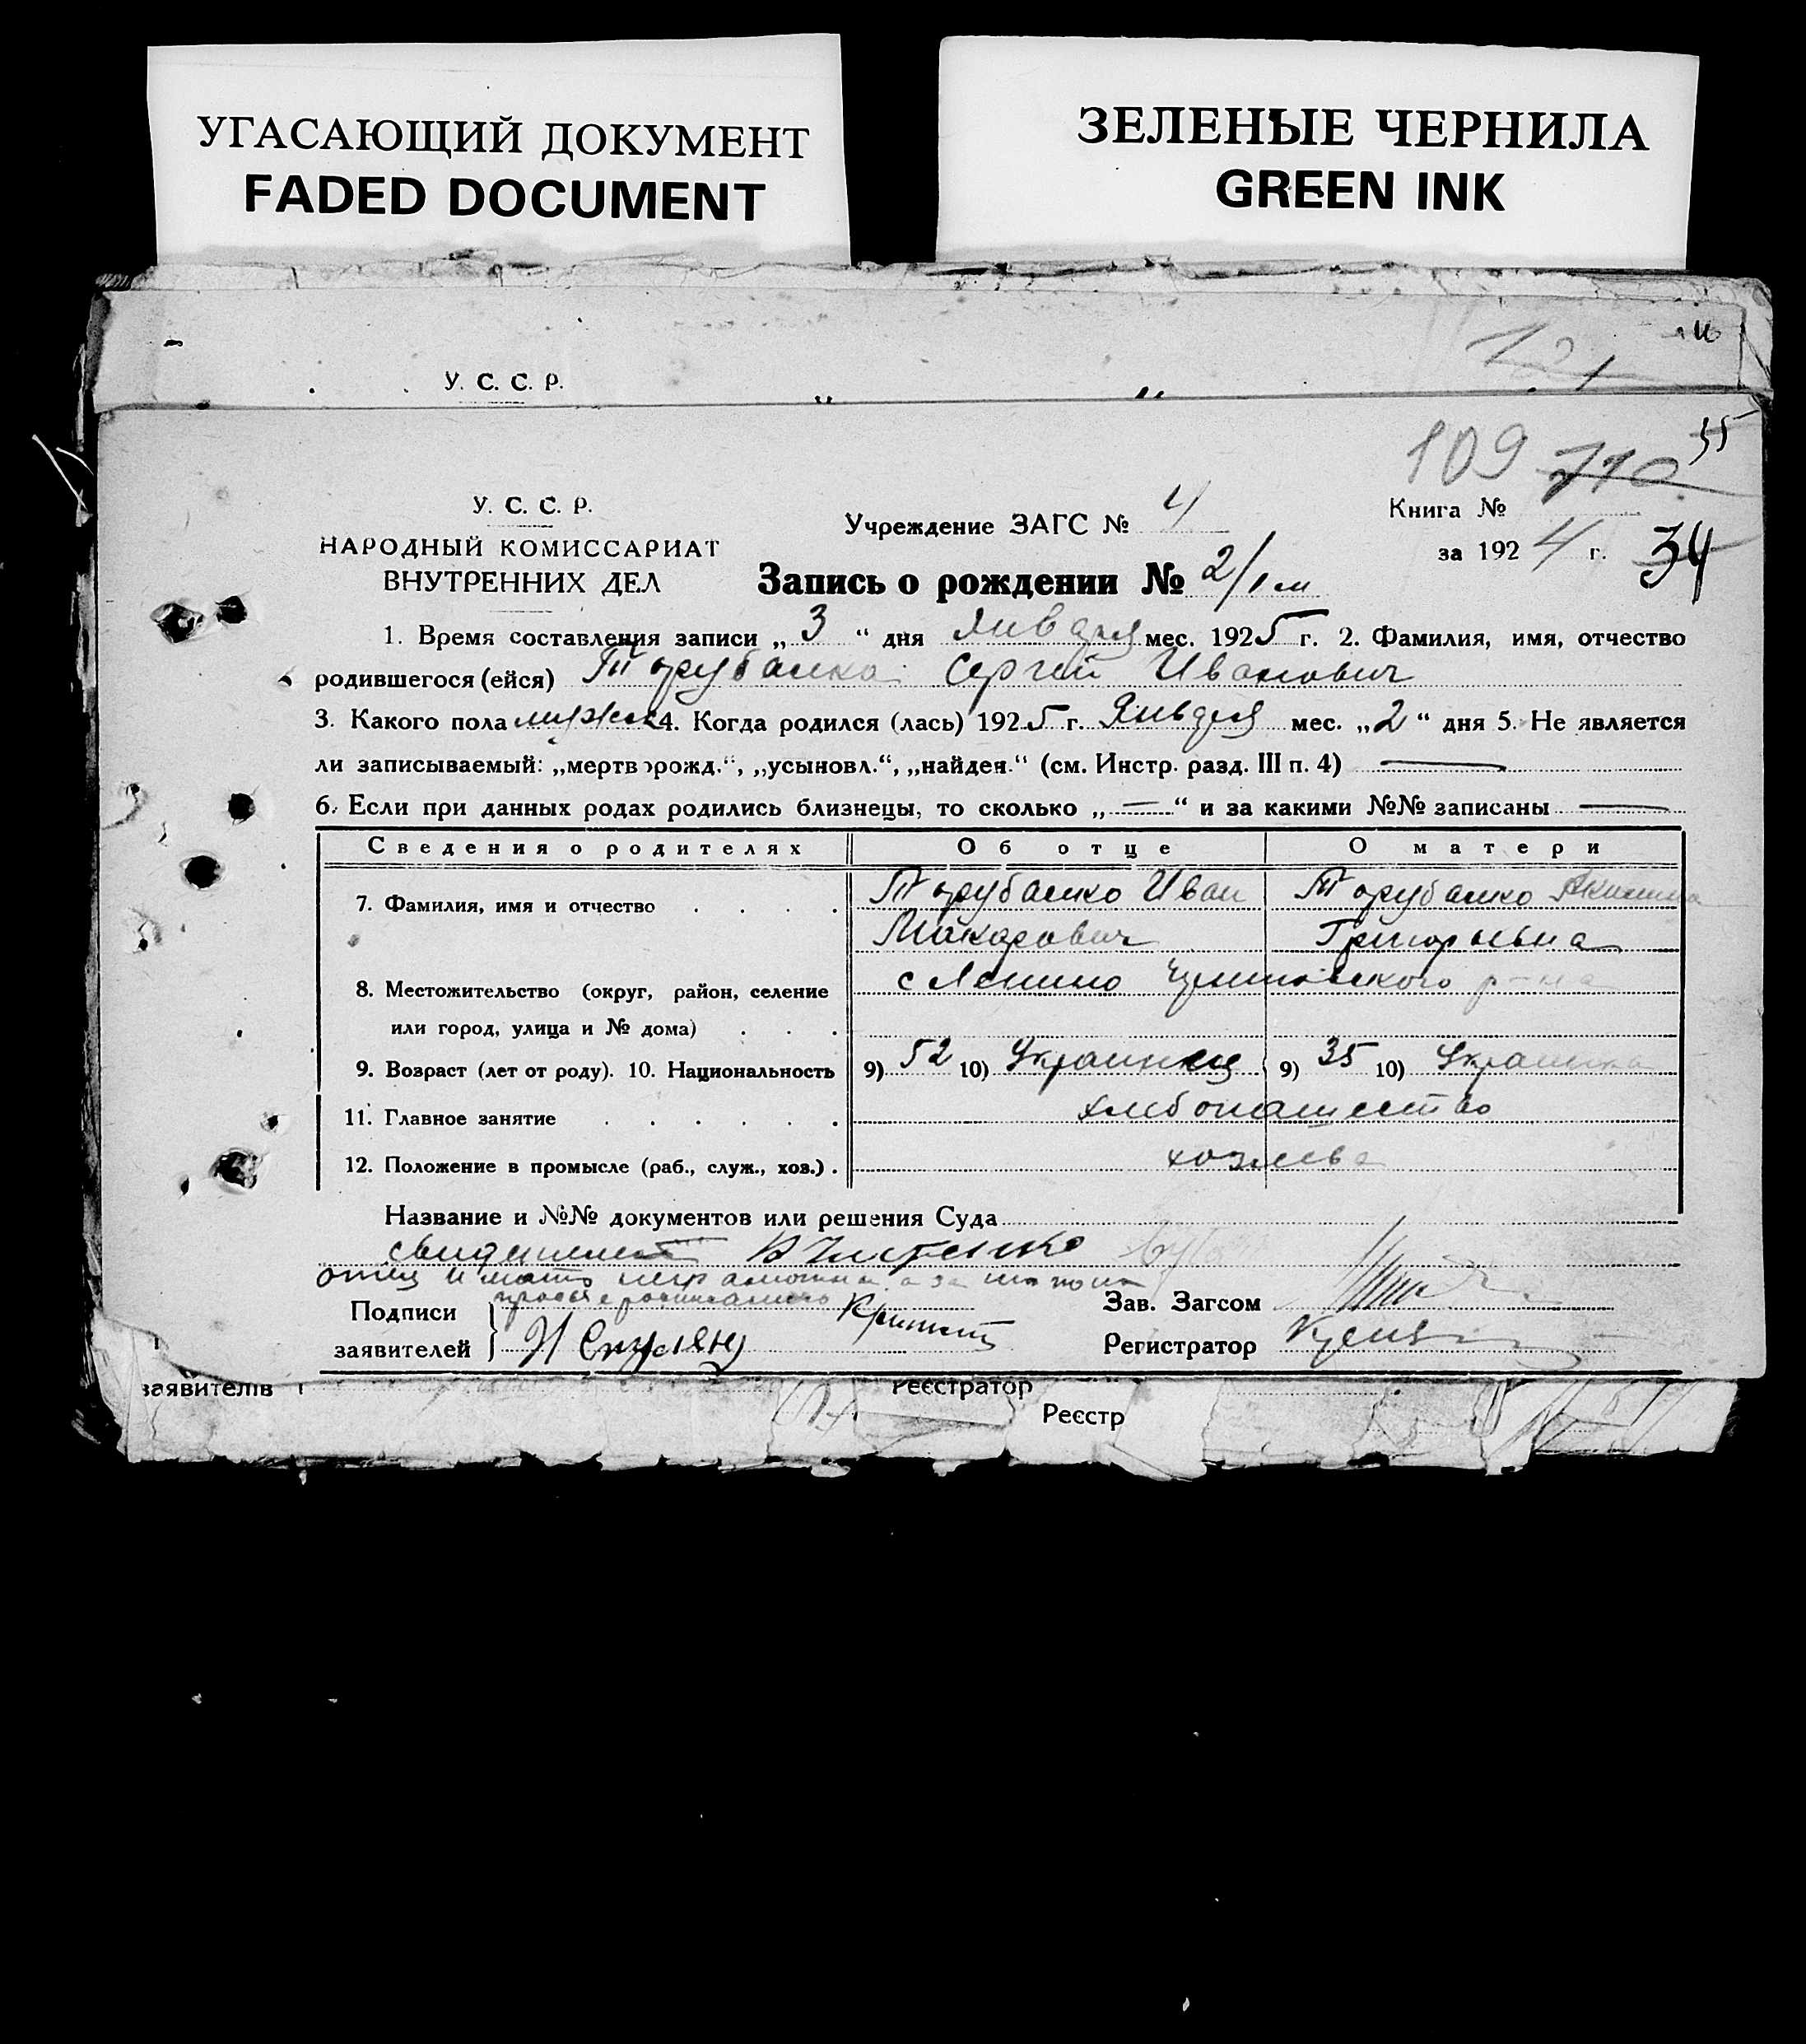 УГАСАЮЩИЙ ДОКУМЕНТ
FADED DOCUMENT
ЗЕЛЕНЫЕ ЧЕРНИЛА
GREEN INK
У. С. С. Р.
109 710 35
У. С. С. Р.
НАРОДНЫЙ КОМИССАРИАТ
ВНУТРЕННИХ ДЕЛ
Учреждение ЗАГС № 4
Книга №
за 1924 г. 34
Запись о рождении № 2/1м
1. Время составления записи „3“ дня Января мес. 1925 г. 2. Фамилия, имя, отчество
родившегося (ейся) Торубалко Сергей Иванович
3. Какого пола мужск 4. Когда родился (лась) 1925 г. Января мес. „2“ дня 5. Не является
ли записываемый: „мертворожд.“, „усыновл.“, „найден.“ (см. Инстр. разд. III п. 4) —
6. Если при данных родах родились близнецы, то сколько „—“ и за какими №№ записаны —
Сведения о родителях Об отце О матери
7. Фамилия, имя и отчество . . . . Торубалко Иван Торубалко Акилина
Макарович Григорьевна
8. Местожительство (округ, район, селение с Ленино р-на
или город, улица и № дома) . . .
9. Возраст (лет от роду). 10. Национальность 9) 52 10) Украинец 9) 35 10) Украинка
11. Главное занятие . . . . . . хлебопашество
12. Положение в промысле (раб., служ., хоз.) . хозяева
Название и №№ документов или решения Суда
отец и мать неграмотны а за них по их
просьбе расписались
Подписи
заявителей
Зав. Загсом
Регистратор
заявителів
Реєстратор
Реєстр